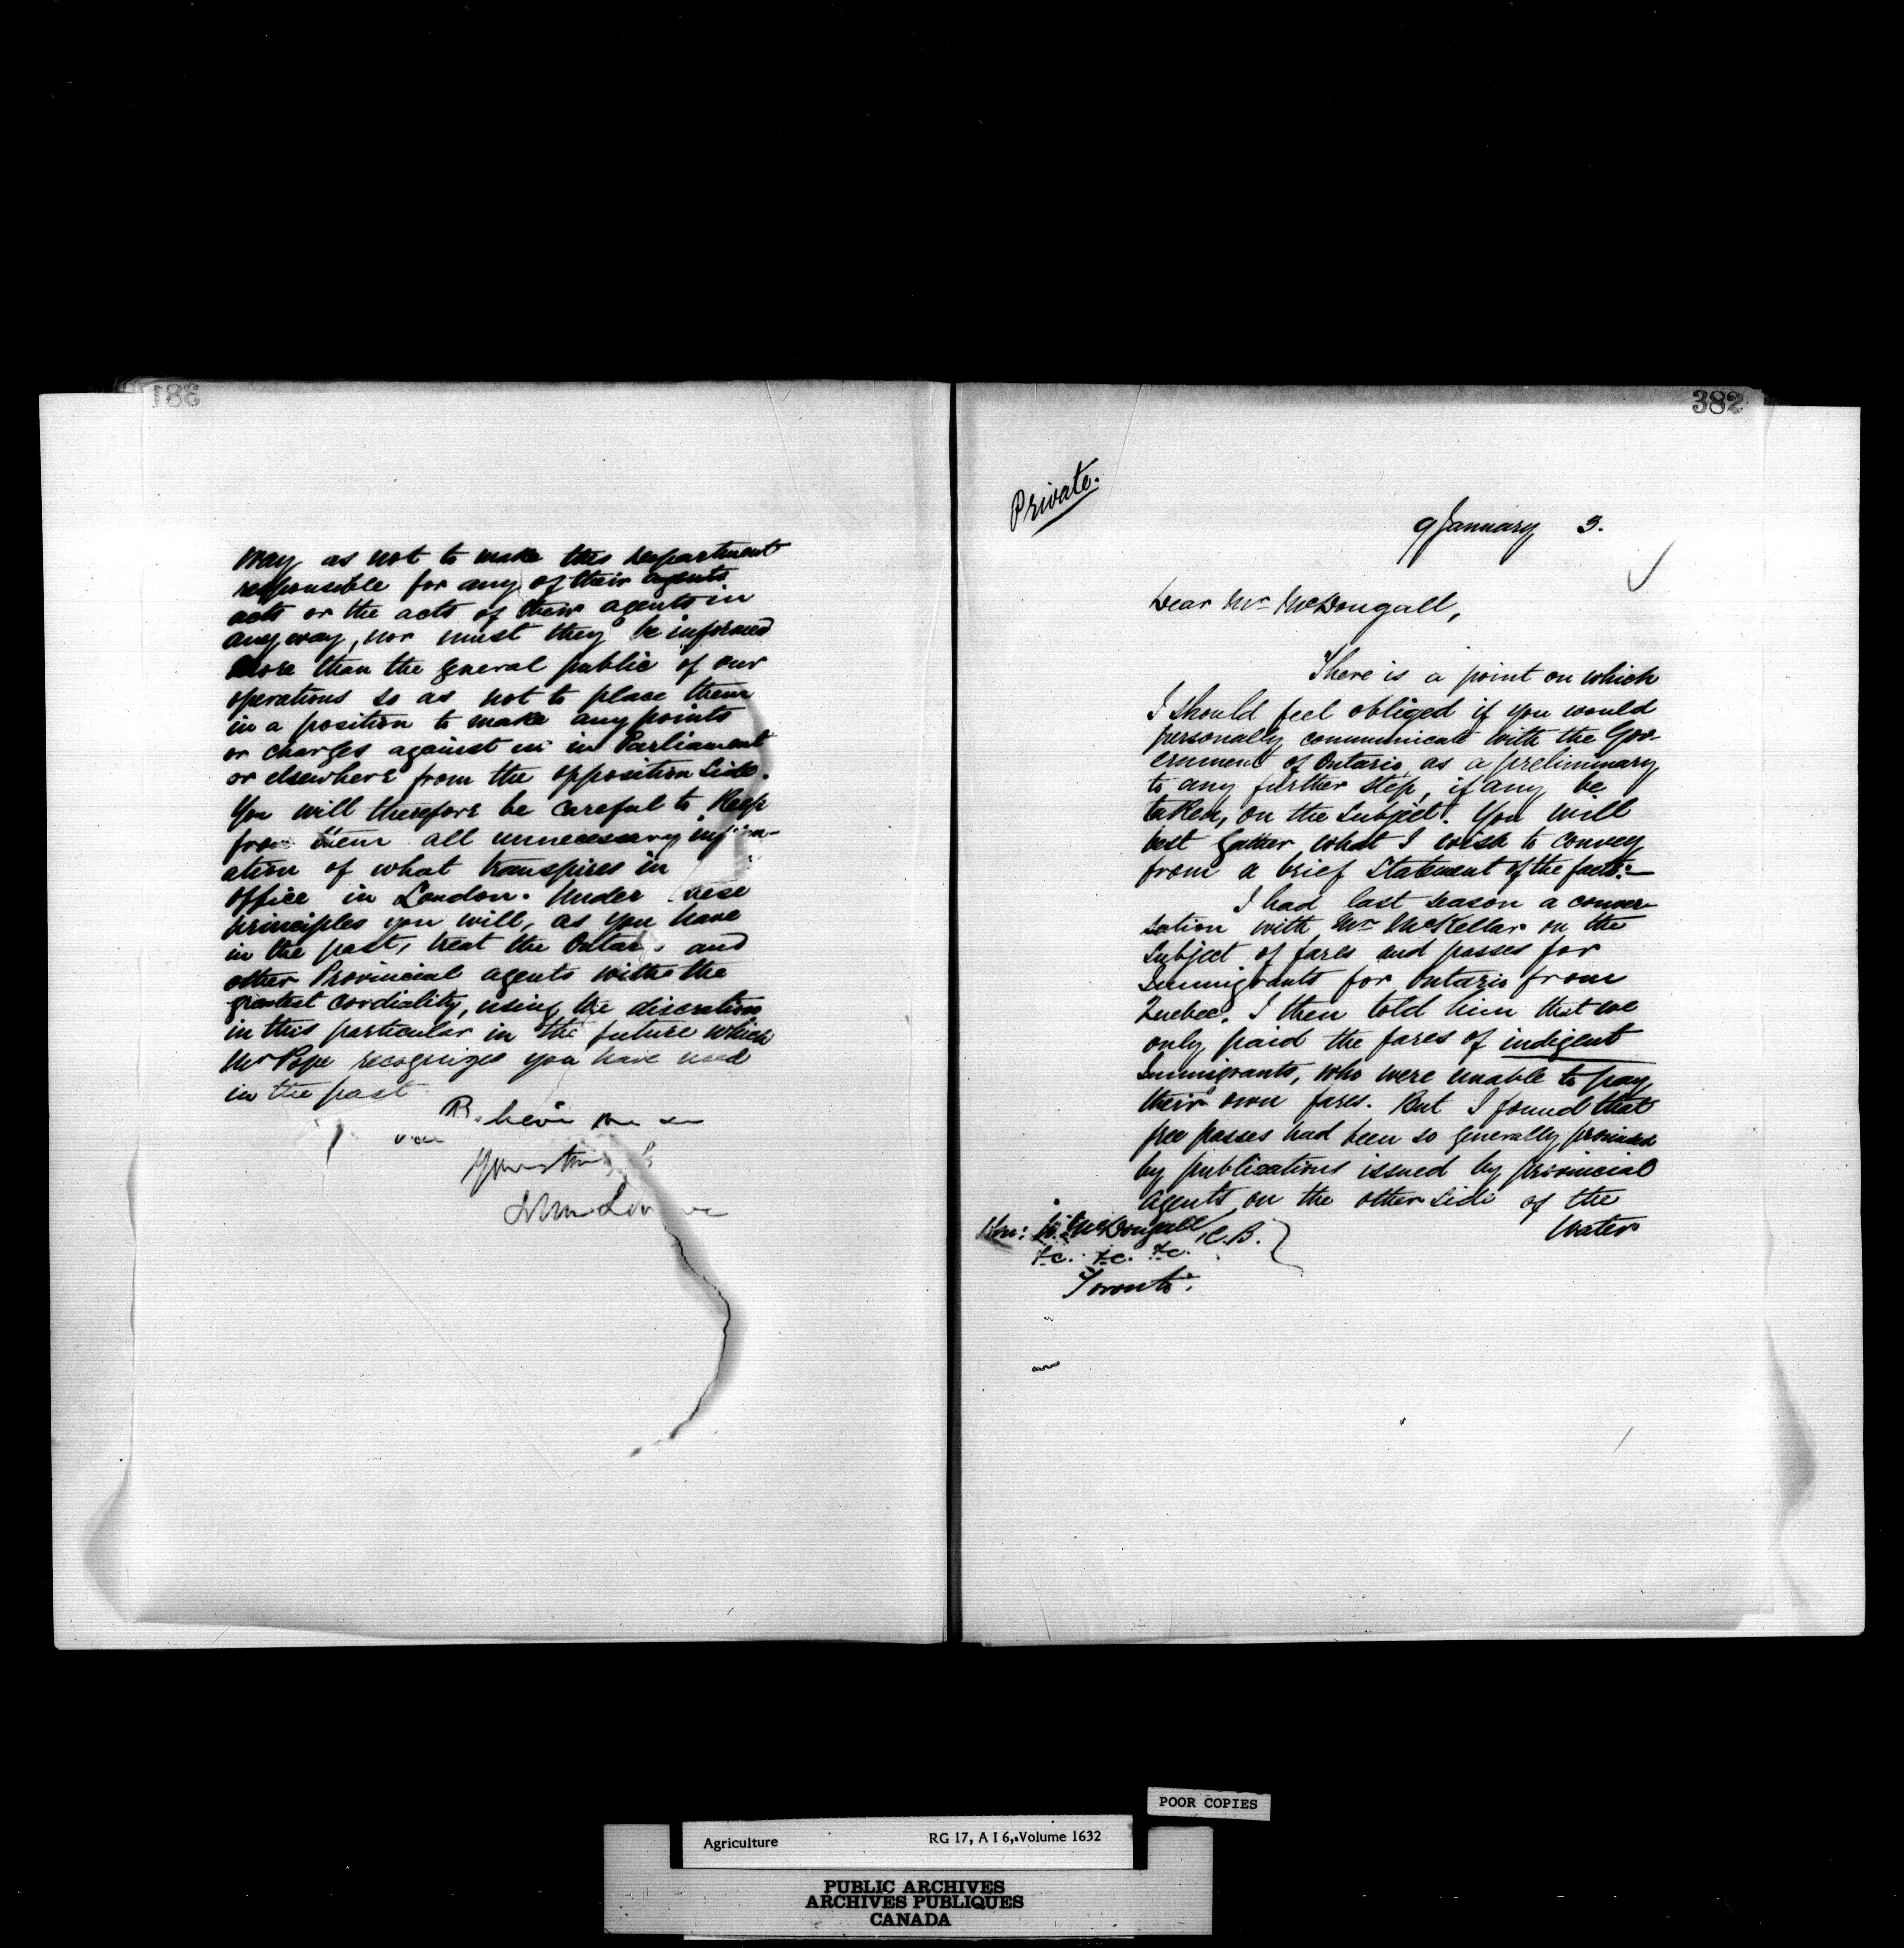 381
way as not to make this department
responsible for any of their agents
acts or the acts of their agents in
any way, nor must they be informed
more than the general public of our
operations so as not to place them
in a position to make any points
or charges against us in Parliament
or elsewhere from the opposition side.
You will therefore be careful to keep
from them all unnecessary inform-
ation of what transpires in
office in London. Under these
principles you will, as you have
in the past, treat the Ontario and
other Provincial agents with the
greatest cordiality, using the discretion
in this particular in the future which
Mr Pope recognizes you have used
in the past
Believe me
Yours truly
John Lowe
382
Private.
9 January 3.
Dear Mr McDougall,
There is a point on which
I should feel obliged if you would
personally communicate with the Gov-
ernment of Ontario as a preliminary
to any further step, if any be
taken, on the subject. You will
best gather what I wish to convey
from a brief statement of the facts:—
I had last season a conver-
sation with Mr McKellar on the
subject of fares and passes for
Immigrants for Ontario from
Quebec. I then told him that we
only paid the fares of indigent
Immigrants, who were unable to pay
their own fares. But I found that
free passes had been so generally promised
by publications issued by provincial
agents on the other side of the
water
Hon: W. McDougall, C.B.
&c. &c. &c.
Toronto.
POOR COPIES
Agriculture RG 17, A I 6, Volume 1632
PUBLIC ARCHIVES
ARCHIVES PUBLIQUES
CANADA